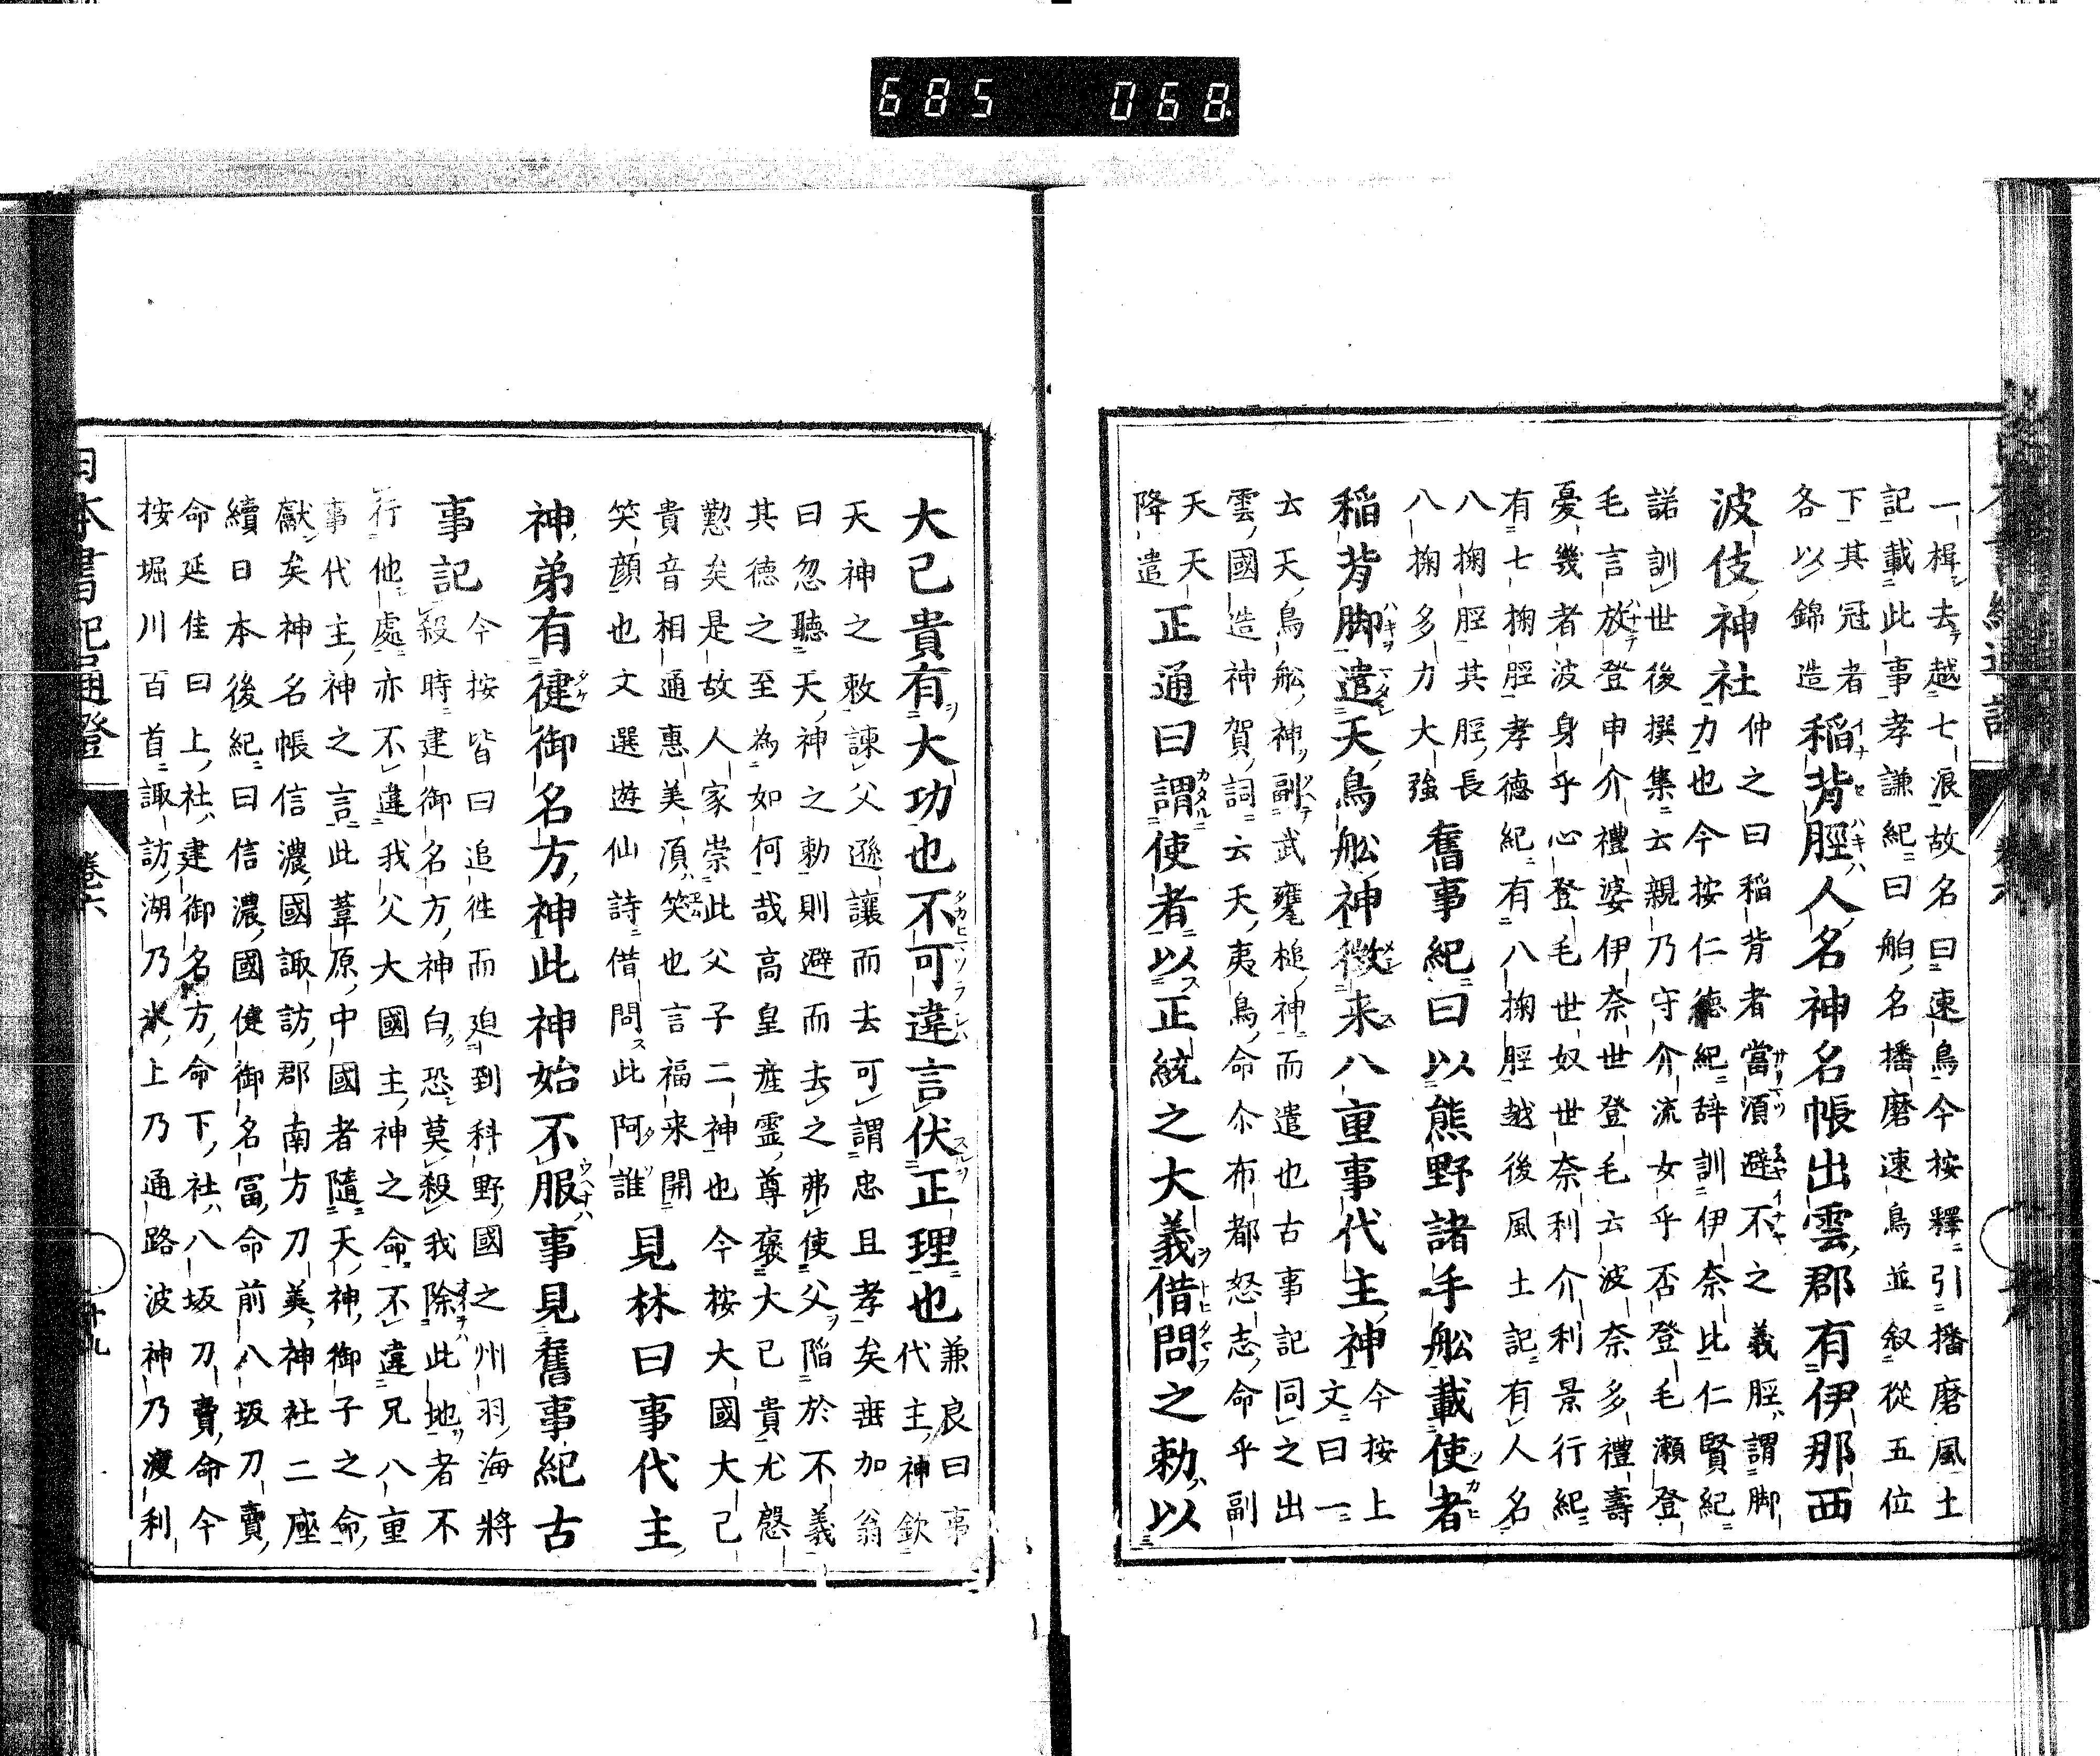 685 068
一楫去越七浪故名曰速鳥今按釋引播磨風土
記載此事孝謙紀曰舶名播磨速鳥並叙從五位
下其冠者
各以錦造
稻背脛人名神名帳出雲郡有伊那西
波伎神社
仲之曰稻背者當湏避不之義脛謂脚
力也今按仁德紀辞訓伊奈此仁賢紀
諾訓世後撰集云親乃守介流女乎否登毛瀬登
毛言放登申介禮婆伊奈世登毛云波奈多禮壽
憂幾者波身乎心登毛世奴世奈利介利景行紀
有七掬脛孝德紀有八掬脛越後風土記有人名
八掬脛其脛長
八掬多力大強
舊事紀曰以熊野諸手舩載使者
稲背脚遣天鳥舩神徴来八重事代主神
今按上
文曰一
云天鳥舩神副武甕槌神而遣也古事記同之出
雲國造神賀詞云天夷鳥命尒布都怒志命乎副
天天
降遣
正通曰謂使者以正統之大義借問之勅以
大己貴有大功也不可違言伏正理也
兼良曰事
代主神欽
天神之敕諫父遜讓而去可謂忠且孝矣垂加翁
曰忽聽天神之勅則避而去之弗使父陷於不義
其德之至為如何哉高皇産靈尊褒大己貴尤慇
懃矣是故人家崇此父子二神也今按大國大己
貴音相通惠美湏笑也言福来開
笑顔也文選遊仙詩借問此阿誰
見林曰事代主
神弟有健御名方神此神始不服事見舊事紀古
事記
今按皆曰追徃而迫到科野國之州羽海將
殺時建御名方神白恐莫殺我除此地者不
行他處亦不違我父大國主神之命不違兄八重
事代主神之言此葦原中國者隨天神御子之命
獻矣神名帳信濃國諏訪郡南方刀美神社二座
續日本後紀曰信濃國健御名冨命前八坂刀賣
命延佳曰上社建御名方命下社八坂刀賣命今
按堀川百首諏訪湖乃氷上乃通路波神乃渡利
日本書紀通證
卷六
十九